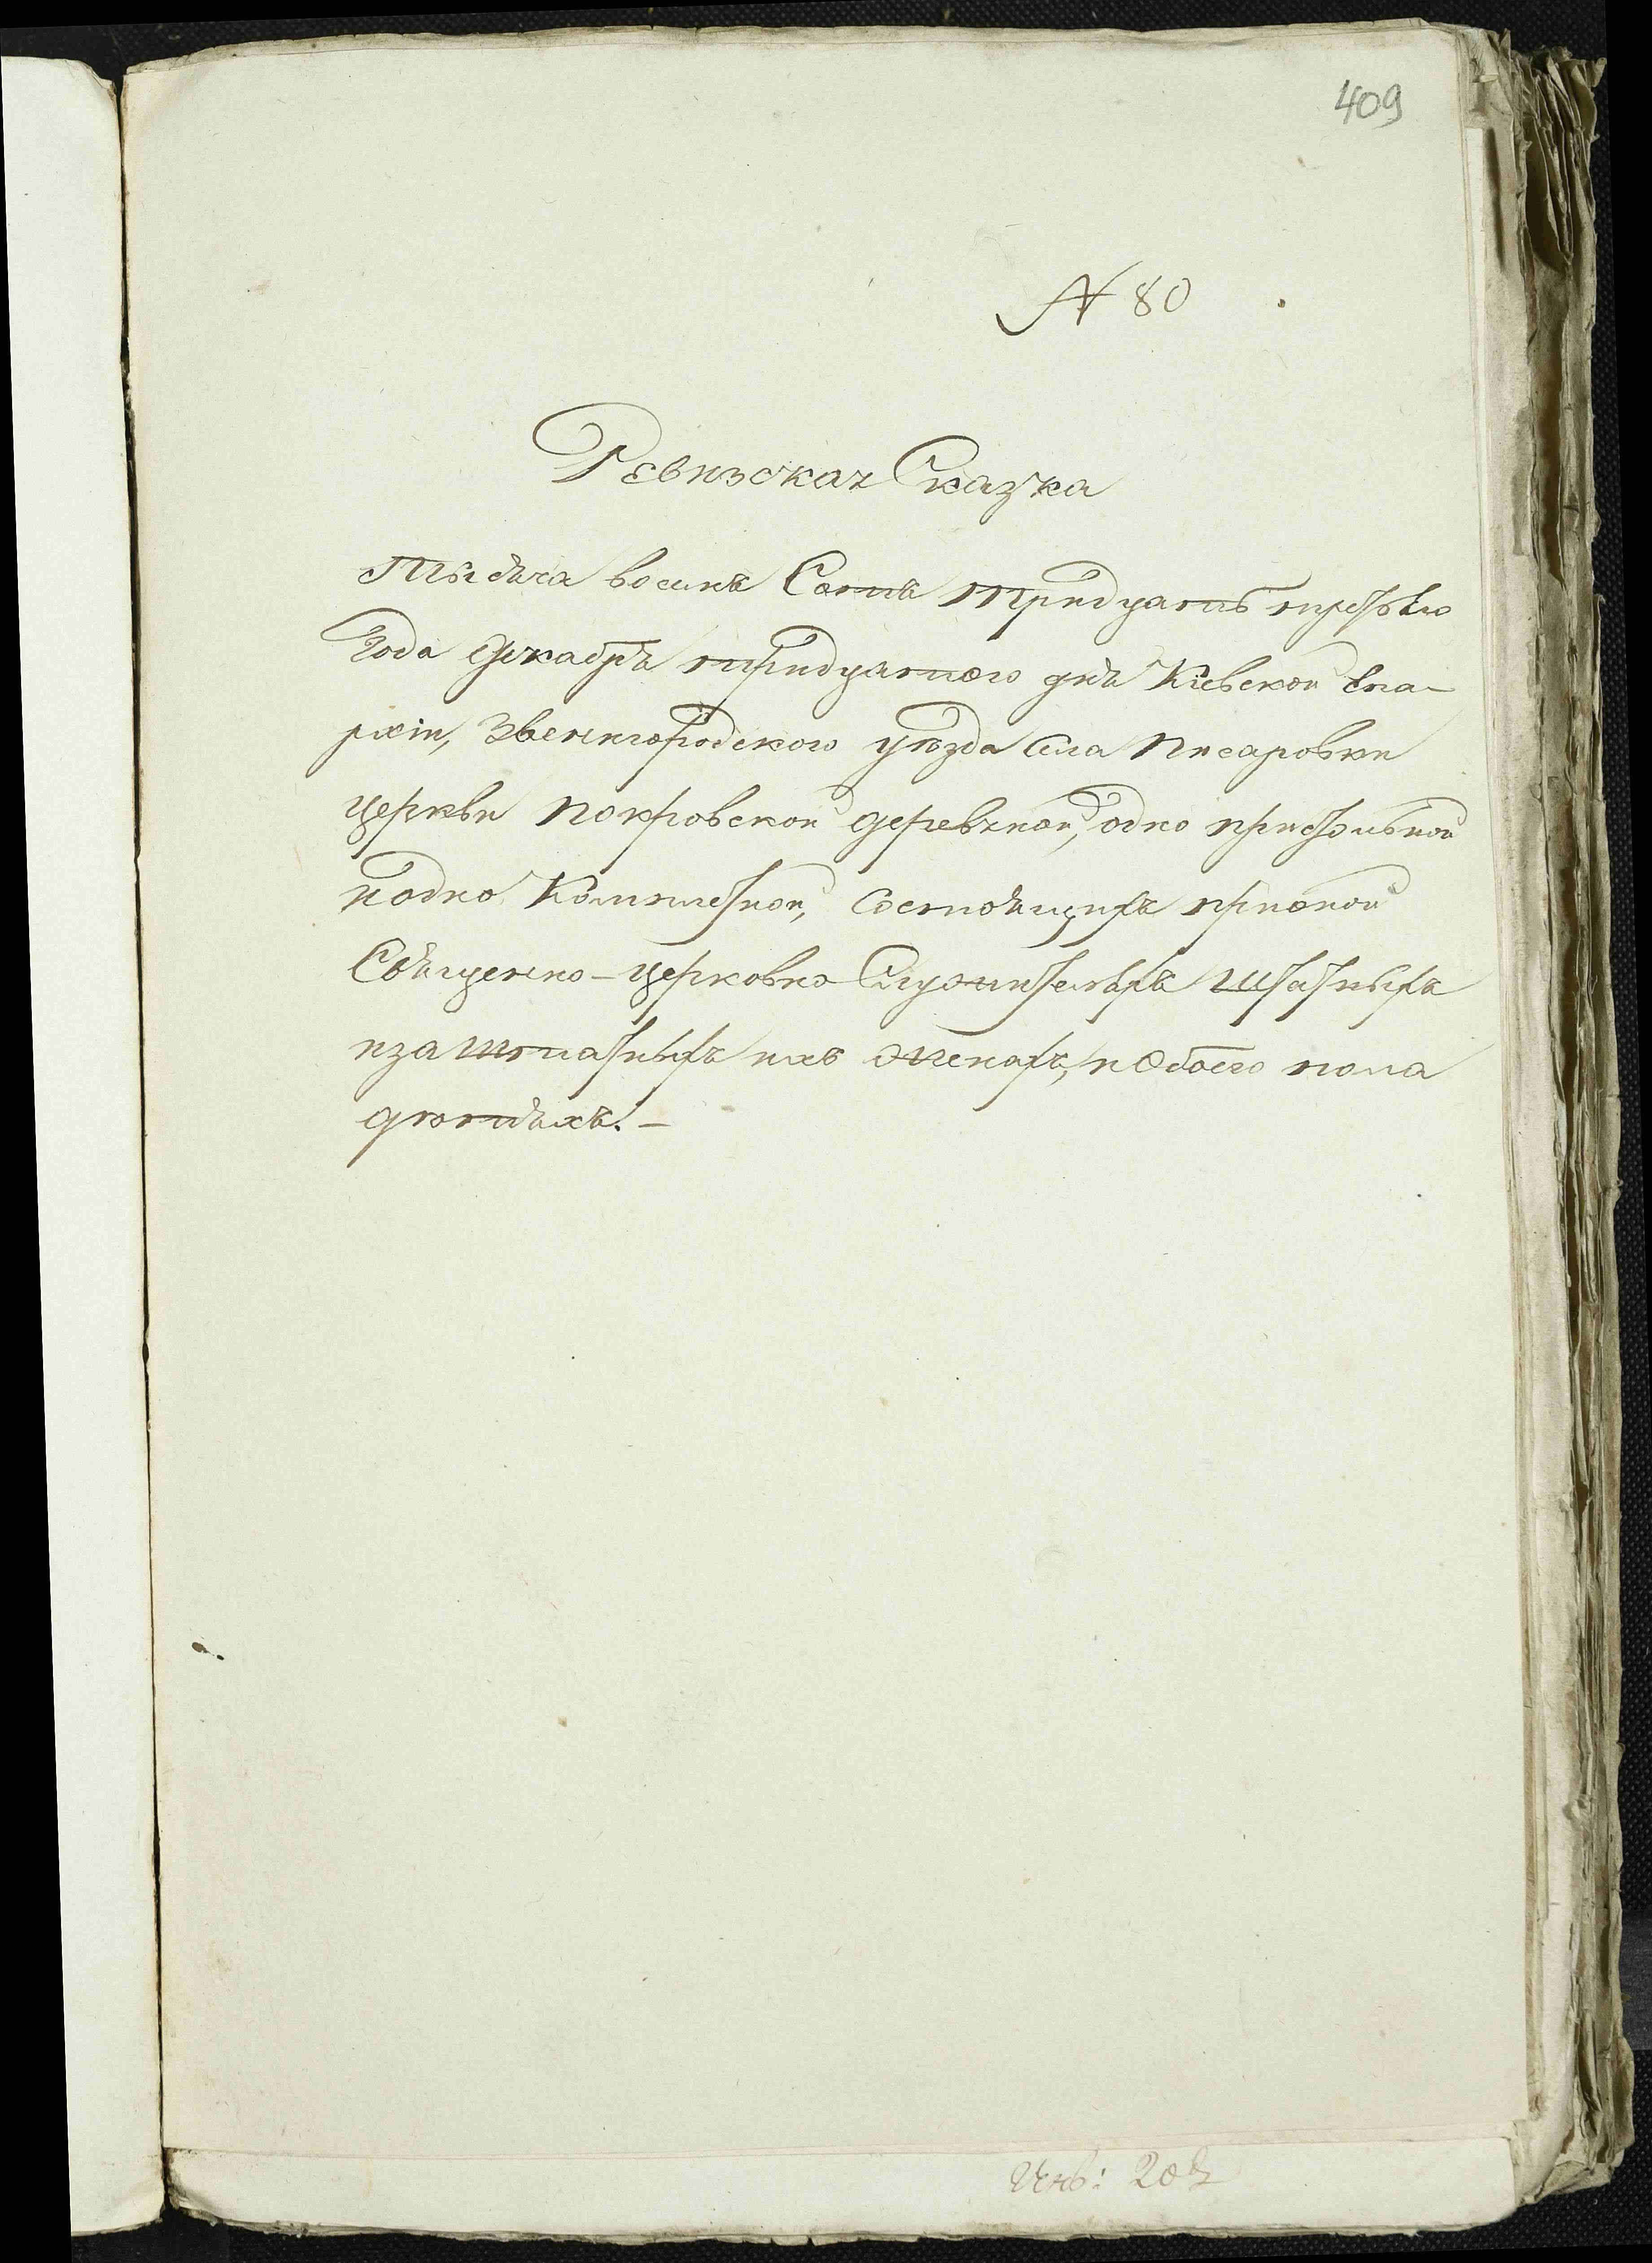 409
№ 80
Ревизская Сказка
Тысяча восемъ Сотъ тридцать третьяго
Года Декабря тридцатого дня Кіевской Епа-
рхіи, Звенигородского уѣзда Села Писаровки
церкви Покровской деревяной, одно престольной
и одно Комплетной, состоящихъ при оной
Священно-церковно Служителяхъ штатныхъ
и заштатныхъ ихъ женахъ, и Обоего пола
дѣтяхъ. —